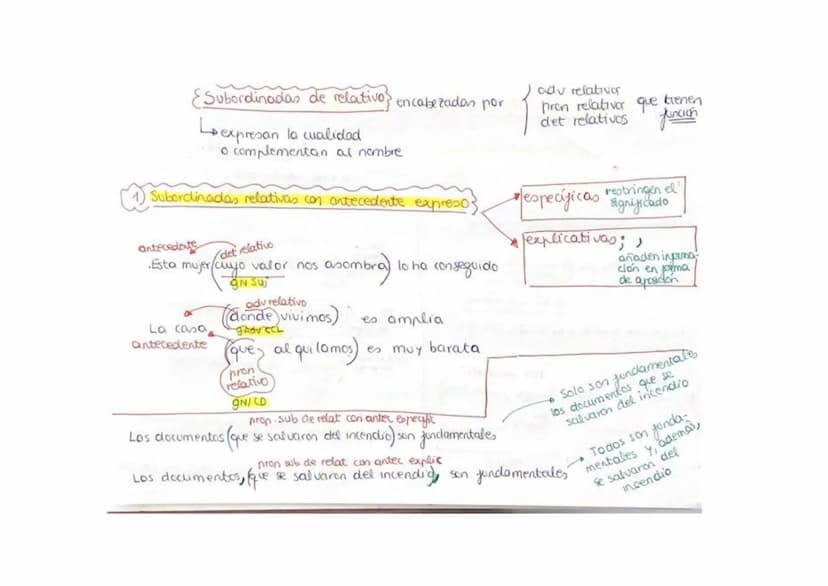 {Subordinadas de relativo} encabezadas por
adv relativos
pron relativos
det relativos
que tienen
función
expresan la cualidad
o complementan al nombre
1) Subordinadas relativas con antecedente expreso
específicas restringen el
significado
explicativas ; ,
añaden informa-
ción en forma
de aposición
antecedente det relativo
.Esta mujer (cuyo valor nos asombra) lo ha conseguido
GN Suj
adv relativo
(donde vivimos) es amplia
La casa GAdv CCL
antecedente (que alquilamos) es muy barata
pron
relativo
GN/CD
prop. sub de relat con antec especif
Los documentos (que se salvaron del incendio) son fundamentales
Solo son fundamentales
los documentos que se
salvaron del incendio
pron sub de relat con antec explic
Los documentos, (que se salvaron del incendio), son fundamentales
Todos son funda-
mentales y, además,
se salvaron del
incendio